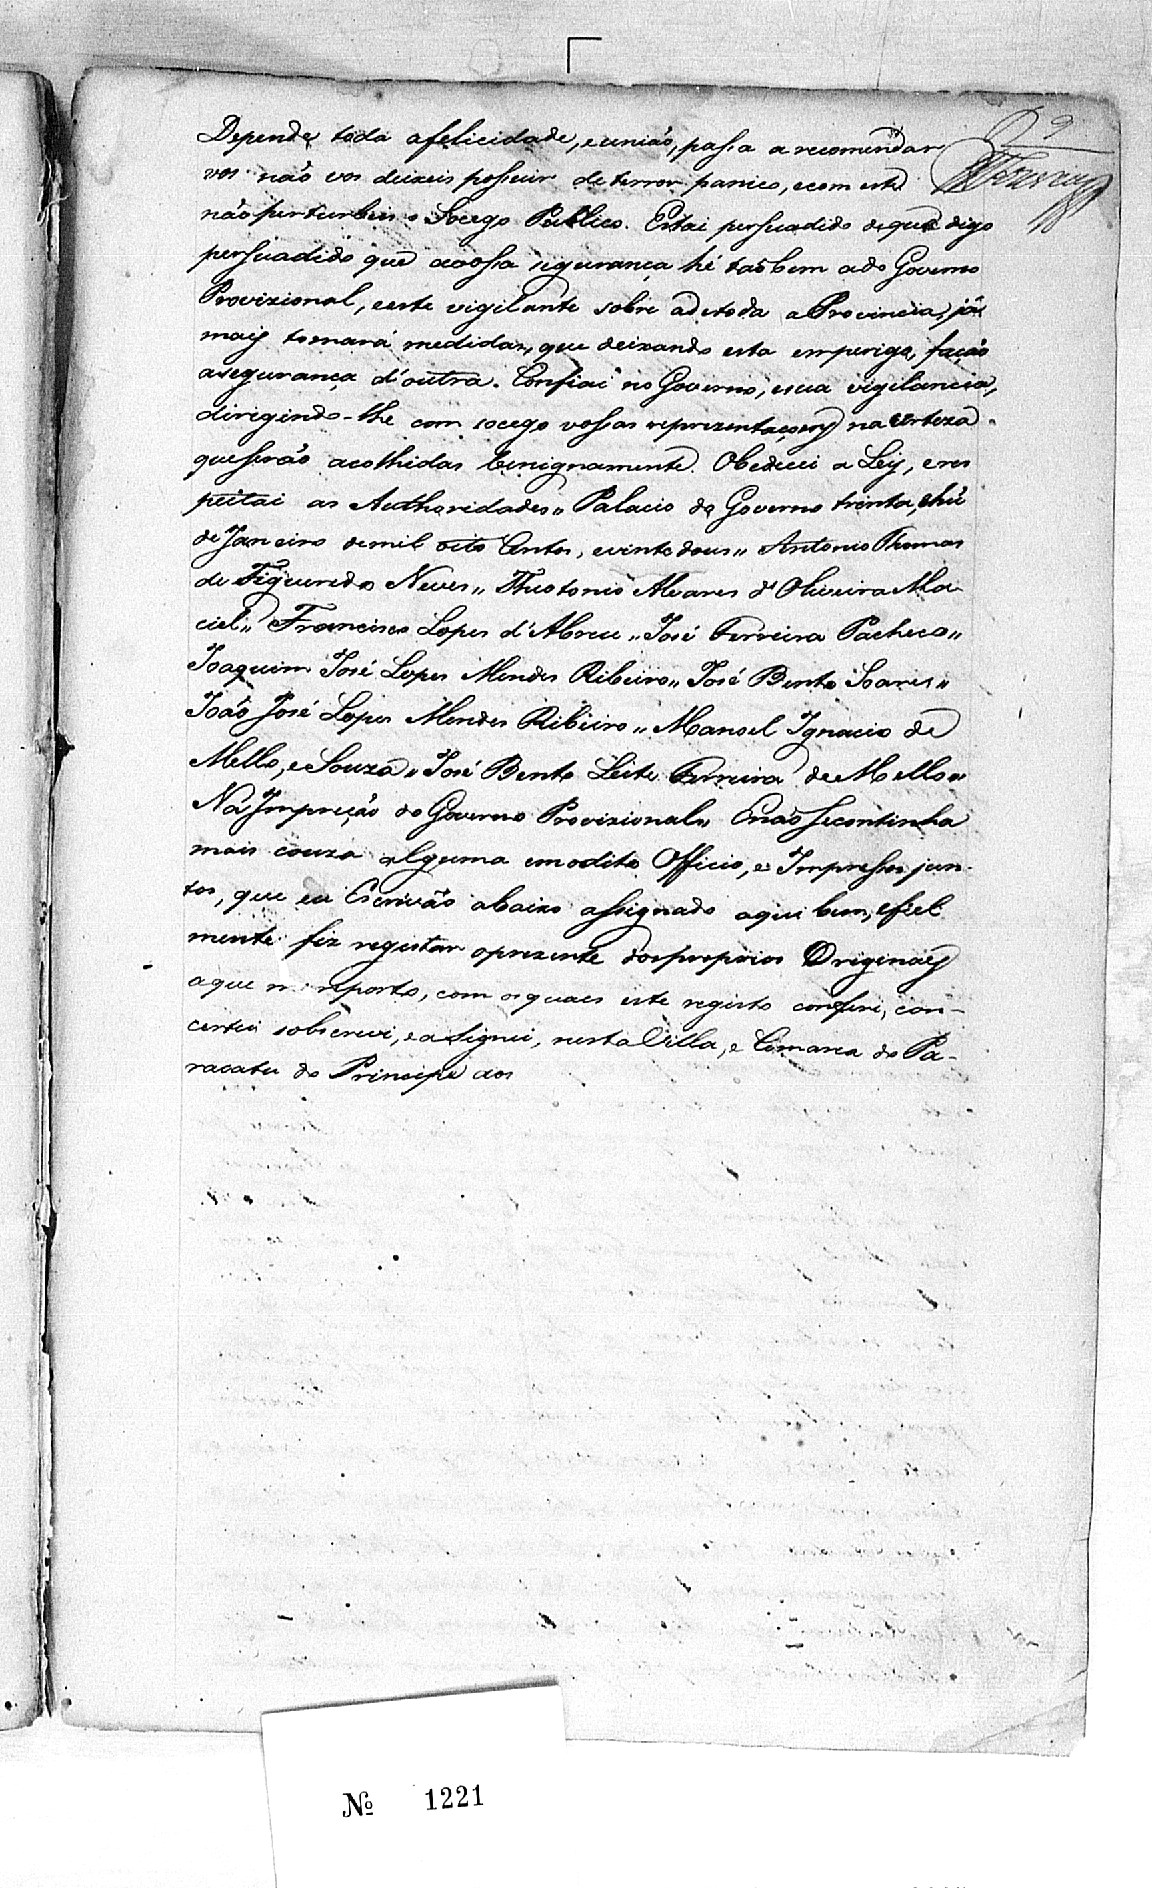 9
Depende toda afelicidade, euniaõ, passa a recomendar
vos naõ vos deixeis possuir deterror panico, ecom este
naõ perturbeis o Socego Publico. Estai persuadido deque digo
persuadido que avossa segurança hé taõbem ado Governo
Provizional, eeste vigilante sobre adetoda a Provincia, já
mais tomará medidas, que deixando esta emperigo, façaõ
asegurança d'outra. Confiai no Governo, esua vigilancia,
dirigindo-lhe com socego vossas reprezentaçoens na certeza
queseraõ acolhidas benignamente. Obedecei a Ley, eres
peitai as Authoridades,, Palacio do Governo trinta, ehû
de Janeiro demil oito Centos, evintedous,, Antonio Thomas
de Figueredo Neves,, Theotonio Alvares d'Oliveira Ma
ciel,, Francisco Lopes d'Abreu,, José Ferreira Pacheco,,
Joaquim José Lopes Mendes Ribeiro,, José Bento Soares,,
João José Lopes Mendes Ribeiro,, Manoel Ignacio de
Mello, e Souza,, José Bento Leite Ferreira de Mello,,
Na Impreçaõ do Governo Provizional,, Enaõ secontinha
mais couza alguma emodito Officio, e Impressos jun-
tos, que eu Escrivaõ abaixo assignado aqui bem, efiel
mente fiz registar oprezente dosproprios Originaes
aque m reporto, com osquaes este registo conferi, con-
certei sobscrevi, easignei, nesta Villa, e Comarca do Pa-
racatu do Principe aos
Nº 1221